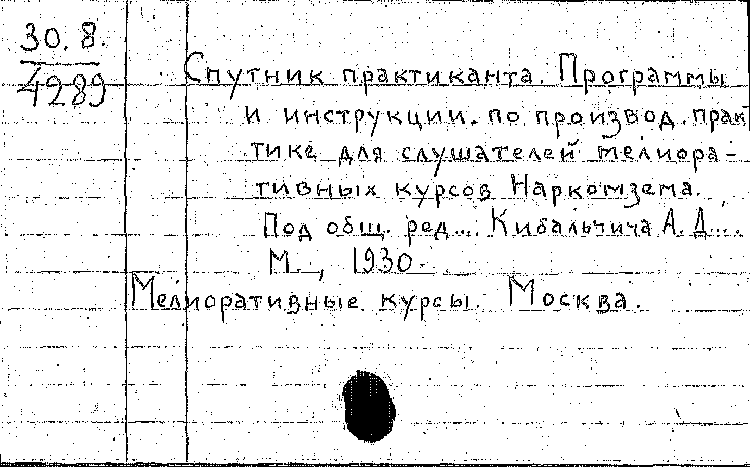 30. 8.
4289
Спутник практиканта. Программы
и инструкции по производ. прак
тике для слушателей мелиора-
тивных курсов Наркомзема.
Под общ. ред... Кибальчича А. Д...
М., 1930.
Мелиоративные курсы. Москва.